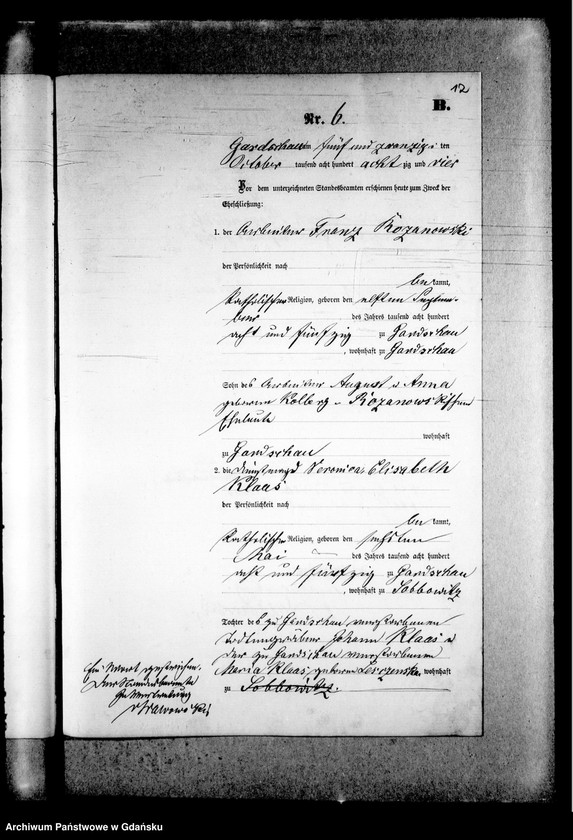 12
B.
Nr. 6.
Gardschau am fünf und zwanzig ten
October tausend acht hundert acht zig und vier
Vor dem unterzeichneten Standesbeamten erschienen heute zum Zweck der
Eheschließung:
1. der Arbeiter Franz Rozanowski
der Persönlichkeit nach
be kannt,
katholischer Religion, geboren den elften Septem-
ber des Jahres tausend acht hundert
acht und fünfzig zu Gardschau
, wohnhaft zu Gardschau
Sohn des Arbeiter August u Anna
geborene Kolberg - Rozanowskischen
Eheleute
wohnhaft
zu Gardschau
2. die Dienstmagd Veronica Elisabeth
Klaas
der Persönlichkeit nach
be kannt,
katholischer Religion, geboren den sechsten
Mai des Jahres tausend acht hundert
acht und fünfzig zu Gardschau
, wohnhaft zu Sobbowitz
Tochter des zu Gardschau verstorbenen
Todtengräber Johann Klaas u
der zu Gardschau verstorbenen
Maria Klaas, geborene wohnhaft
zu Sobbowitz.
Ein Wort gestrichen.
Der Standesbeamte
In Vertretung
Archiwum Państwowe w Gdańsku